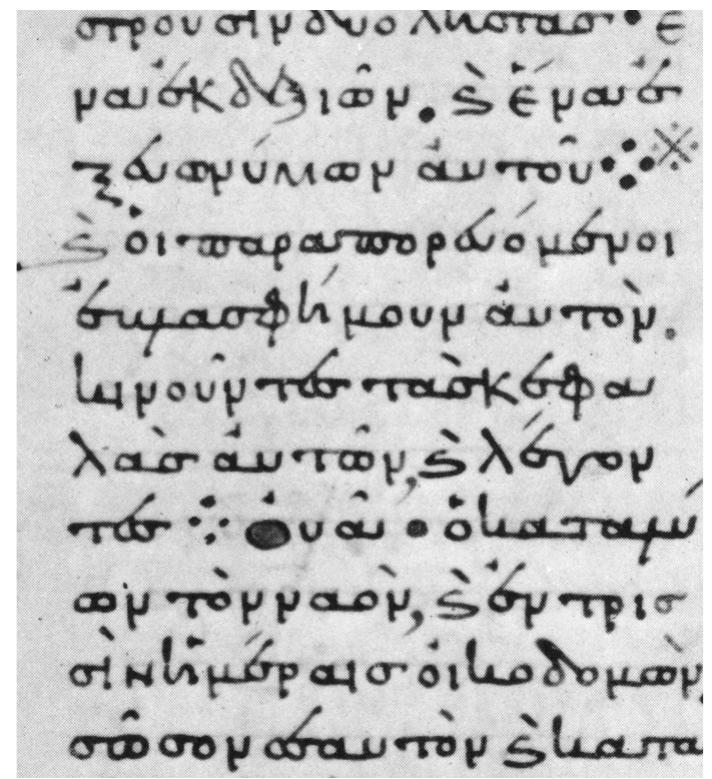 στρουσιν δυο ληστασ· ἕ
να ἐκ δεξιῶν. ϗ ἕνα ἐ
ξ εὐωνύμων αὐτοῦ ⁘ ※
ϗ οἱ παραπορευόμενοι
ἐβλασφήμουν αὐτὸν.
κινοῦντεσ τὰσ κεφα
λὰσ αὐτῶν, ϗ λέγον
τεσ ⁘ Οὐᾶ · ὁ καταλύ
ων τὸν ναὸν, ϗ ἐν τρισ
σὶν ἡμέραισ οἰκοδομῶν
σῶσον σεαυτὸν ϗ κατα